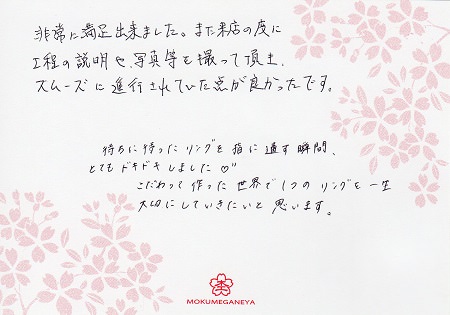 非常に満足出来ました。また来店の度に
工程の説明や、写真等を撮って頂き、
スムーズに進行されていた点が良かったです。
待ちに待ったリングを指に通す瞬間、
とてもドキドキしました♡"
こだわって作った世界で1つのリングを一生
大切にしていきたいと思います。
MOKUMEGANEYA